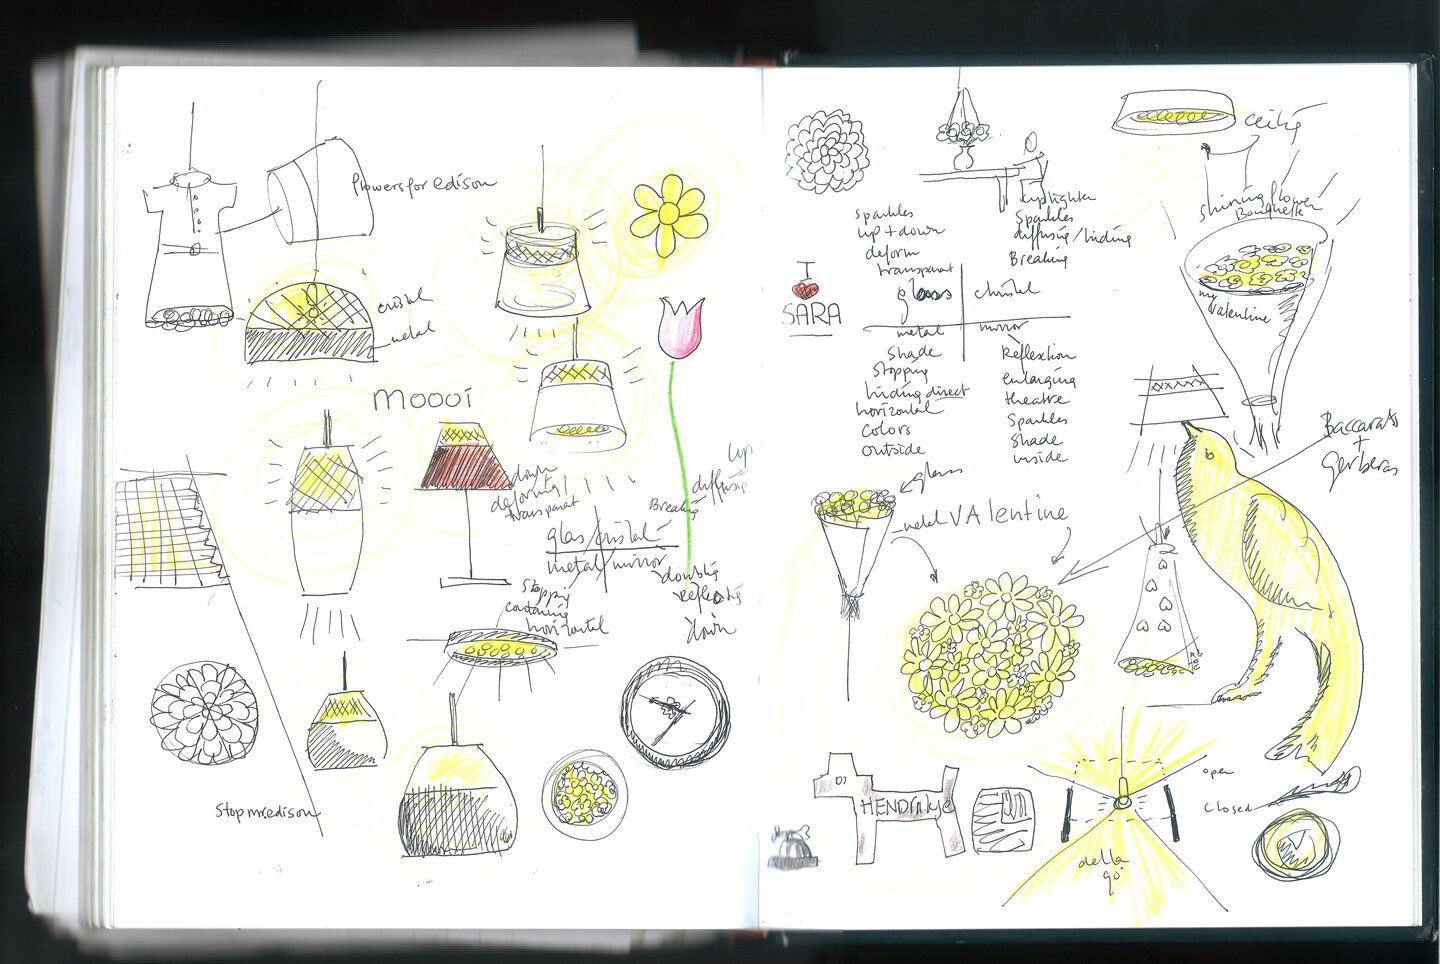 flowers for edison
cristal
metal
moooi
down
deforming
transparat
glas/cristal
metal/mirror
stopping
containing
horizontal
Breaking
up
diffusing
double
Reflecting
down
Stop mr edison
sparkles
up + down
deform
transparat
glass
metal
shade
stopping
hiding direct
horizontal
colors
outside
uplighter
Sparkles
diffusing/hiding
Breaking
christal
mirror
Reflextion
enlarging
theatre
Sparkles
shade
inside
I
SARA
shining flower
Bouquette
my
valentine
Baccarats
+
gerberas
glass
metal
VAlentine
HENDrikje
open
closed
della
go